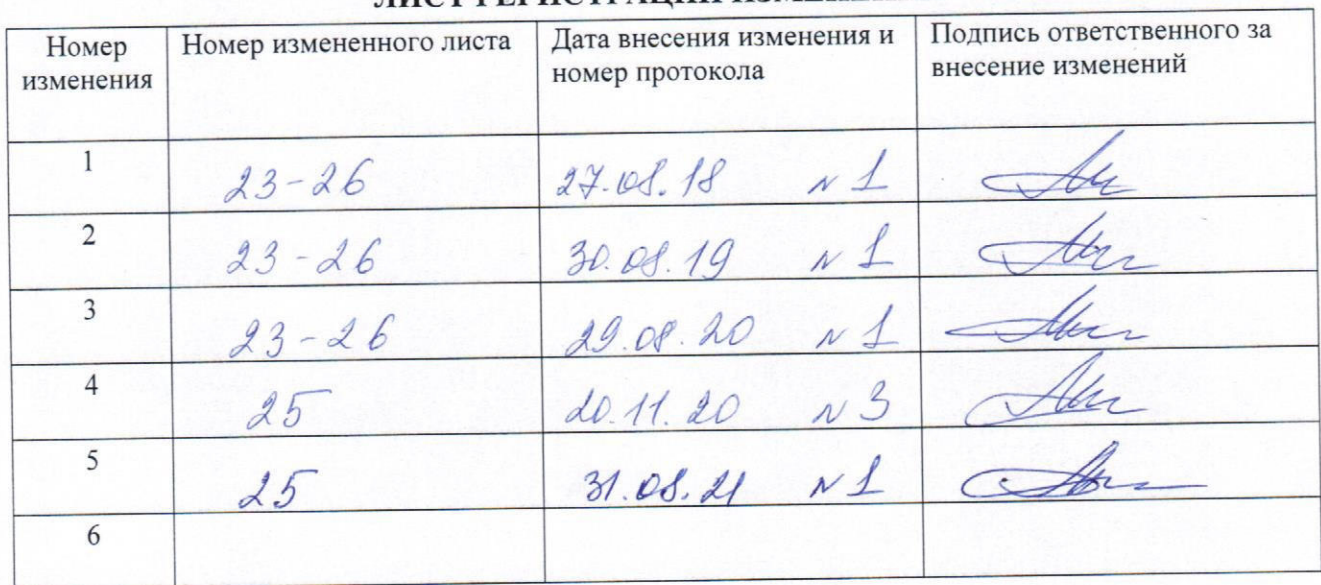 ЛИСТ РЕГИСТРАЦИИ
Номер изменения Номер измененного листа Дата внесения изменения и номер протокола Подпись ответственного за внесение изменений
1 23-26 27.08.18 № 1
2 23-26 30.08.19 № 1
3 23-26 29.08.20 № 1
4 25 20.11.20 № 3
5 25 31.08.21 № 1
6